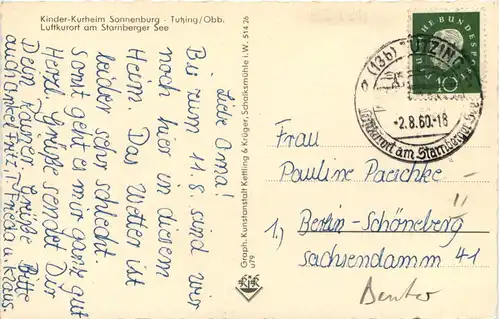 Kinder-Kurheim Sonnenburg - Tutzing/Obb.
Luftkurort am Starnberger See
Liebe Oma!
Bis zum 11.8. sind wir
noch hier in diesem
Heim. Das Wetter ist
leider sehr schlecht.
Sonst geht es mir ganz gut
Herzl. Grüße sendet Dir
Dein Rainer. Grüße Bitte
auch Onkel Fritz, T. Frieda u. Klaus.
Graph. Kunstanstalt Kettling & Krüger, Schalksmühle i.W. 514 26
u79
KuK
DEUTSCHE BUNDESPOST
10
(13b) TUTZING
-2.8.60.-18
Luftkurort am Starnberger See
Frau
Pauline Paeschke
1.) Berlin-Schöneberg
Sachsendamm 41